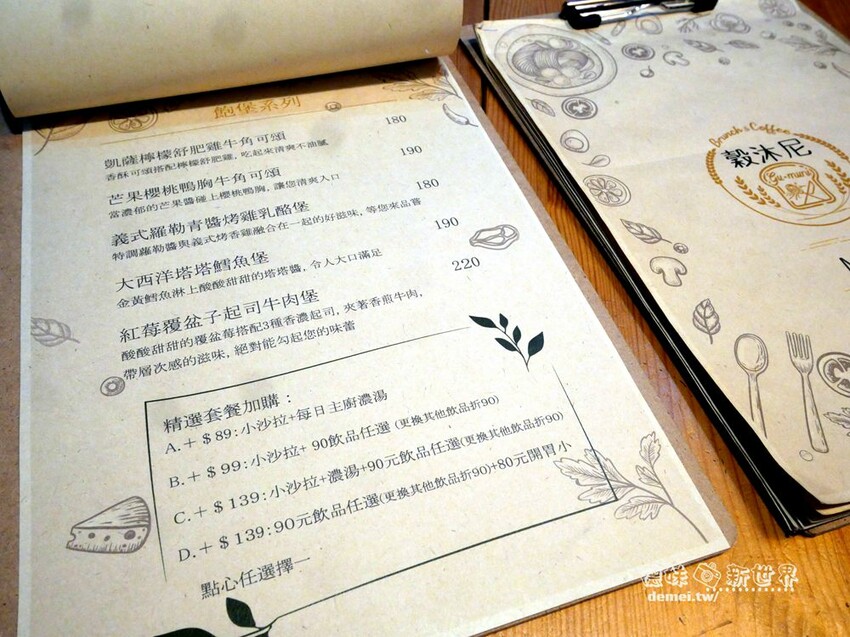 飽堡系列
凱薩檸檬舒肥雞牛角可頌 180
香酥可頌搭配檸檬舒肥雞, 吃起來清爽不油膩
芒果櫻桃鴨胸牛角可頌 190
當濃郁的芒果醬碰上櫻桃鴨胸, 讓您清爽入口
義式羅勒青醬烤雞乳酪堡 180
特調蘿勒醬與義式烤香雞融合在一起的好滋味, 等您來品嘗
大西洋塔塔鱈魚堡 190
金黃鱈魚淋上酸酸甜甜的塔塔醬, 令人大口滿足
紅莓覆盆子起司牛肉堡 220
酸酸甜甜的覆盆莓搭配3種香濃起司, 夾著香煎牛肉,
帶層次感的滋味, 絕對能勾起您的味蕾
精選套餐加購：
A.＋＄89:小沙拉+每日主廚濃湯
B.＋＄99:小沙拉+ 90飲品任選 (更換其他飲品折90)
C.＋＄139:小沙拉+濃湯+90元飲品任選(更換其他飲品折90)
D.＋＄139:90元飲品任選(更換其他飲品折90)+80元開胃小
點心任選擇一
Brunch & Coffee
穀沐尼
Gu-muni
新世界
demei.tw/